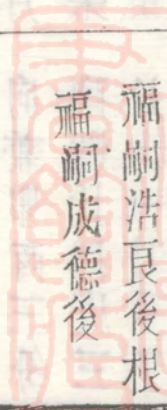 福嗣浩良後根
福嗣成德後